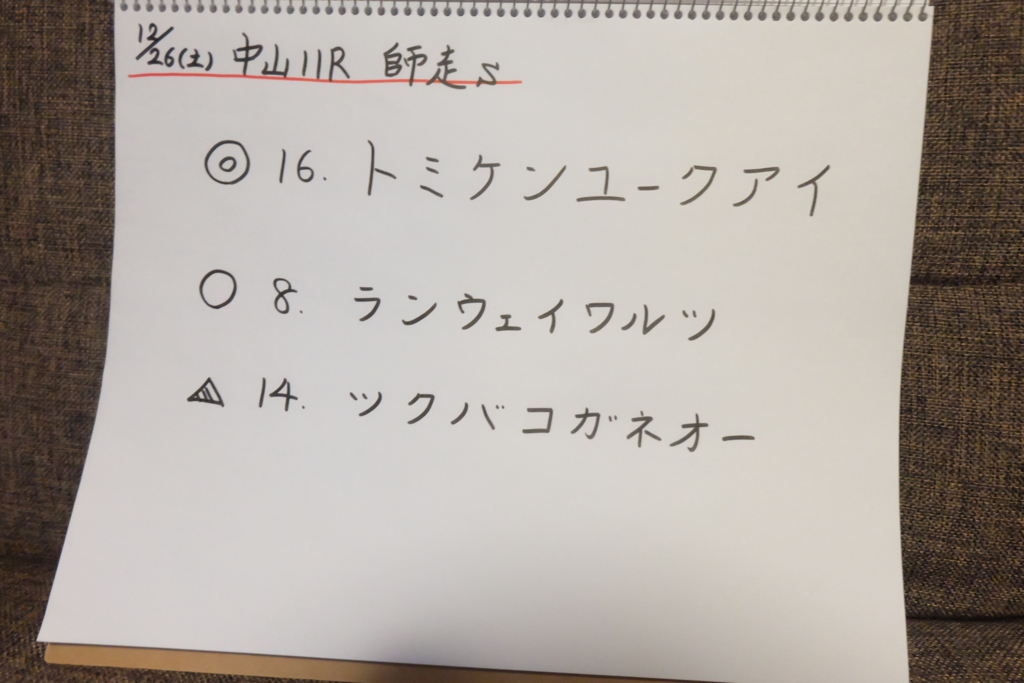 12/26(土) 中山11R 師走S
◎ 16. トミケンユークアイ
○ 8. ランウェイワルツ
▲ 14. ツクバコガネオー